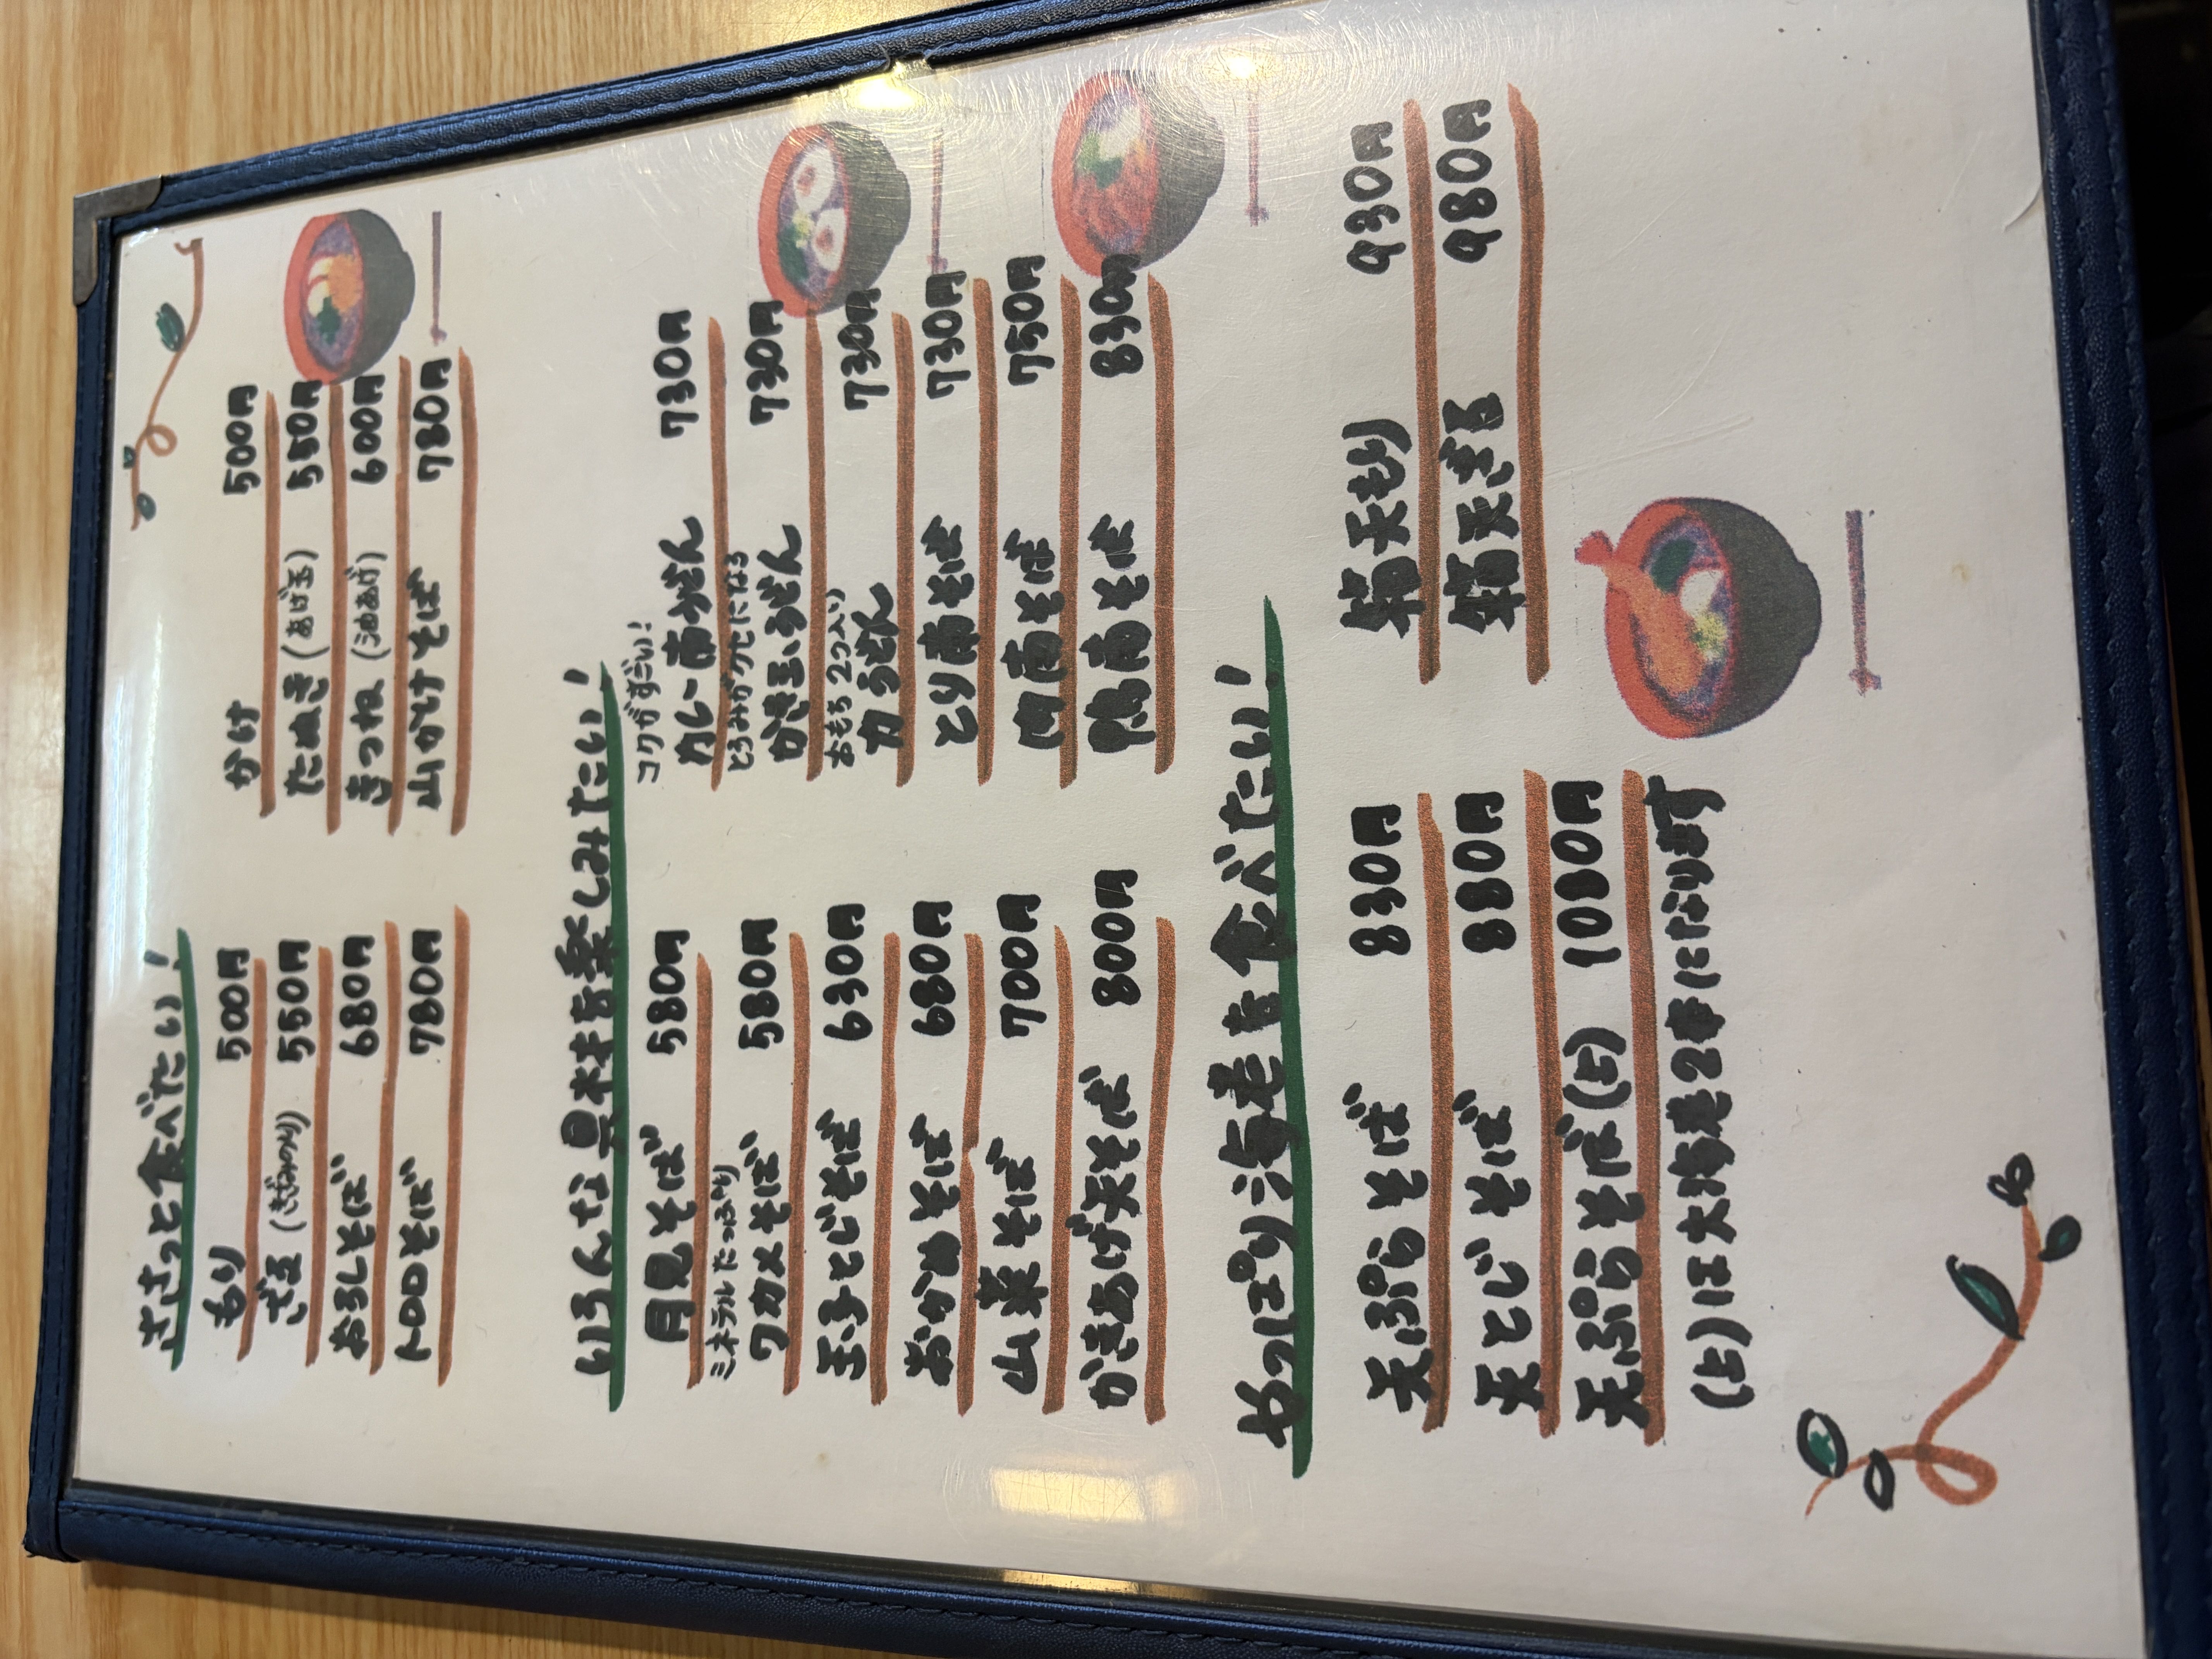 ささっと食べたい!
もり 500円
ざる(きざみのり) 550円
おろしそば 680円
トロロそば 780円
かけ 500円
たぬき(あげ玉) 550円
きつね(油あげ) 600円
山かけそば 780円
いろんな具材を楽しみたい!
月見そば 580円
ミネラルたっぷり
ワカメそば 580円
玉子とじそば 630円
おかめそば 680円
山菜そば 700円
かきあげ天そば 800円
コクがすごい!
カレー南うどん 730円
とろみがクセになる
かき玉うどん 730円
おもち2つ入り
力うどん 730円
とり南そば 730円
肉南そば 750円
鴨南そば 830円
やっぱり海老を食べたい!
天ぷらそば 830円
天とじそば 880円
天ぷらそば(上) 1080円
(上)は大海老2本になります
箱天もり 930円
箱天ざる 980円